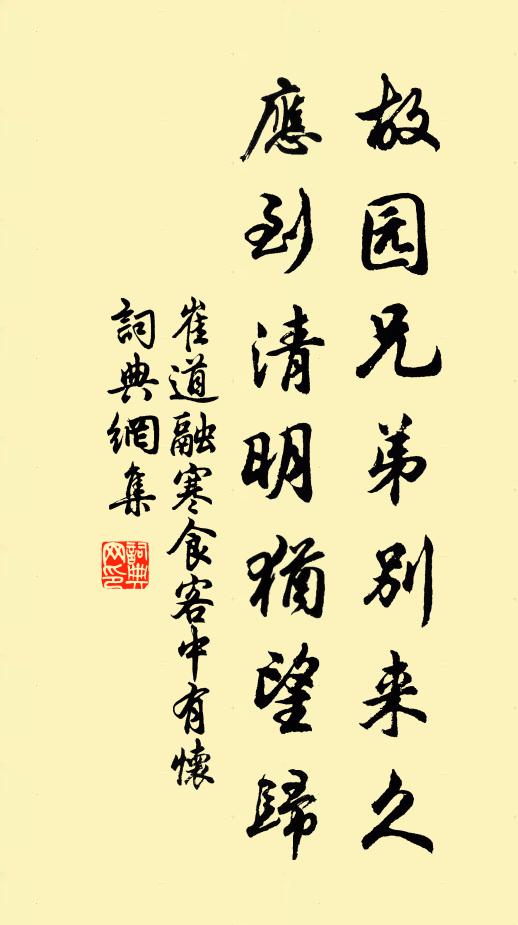 故园兄弟別来久
應到清明猶望歸
崔道融寒食客中有懷
詞典網集
詞典网印